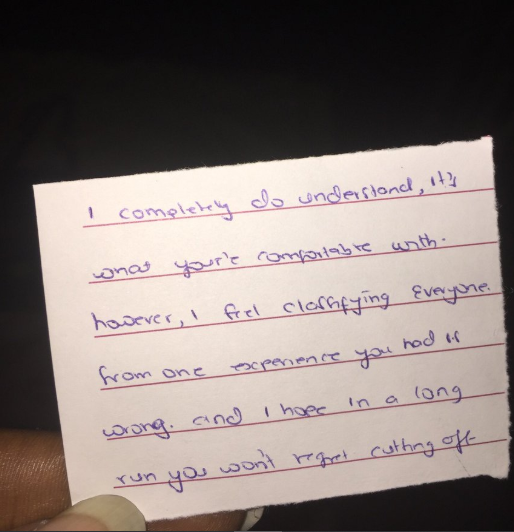 I completely do understand, it's
what you're comfortable with.
however, I feel classifying everyone.
from one experience you had is
wrong. and I hope in a long
run you won't regret cutting off